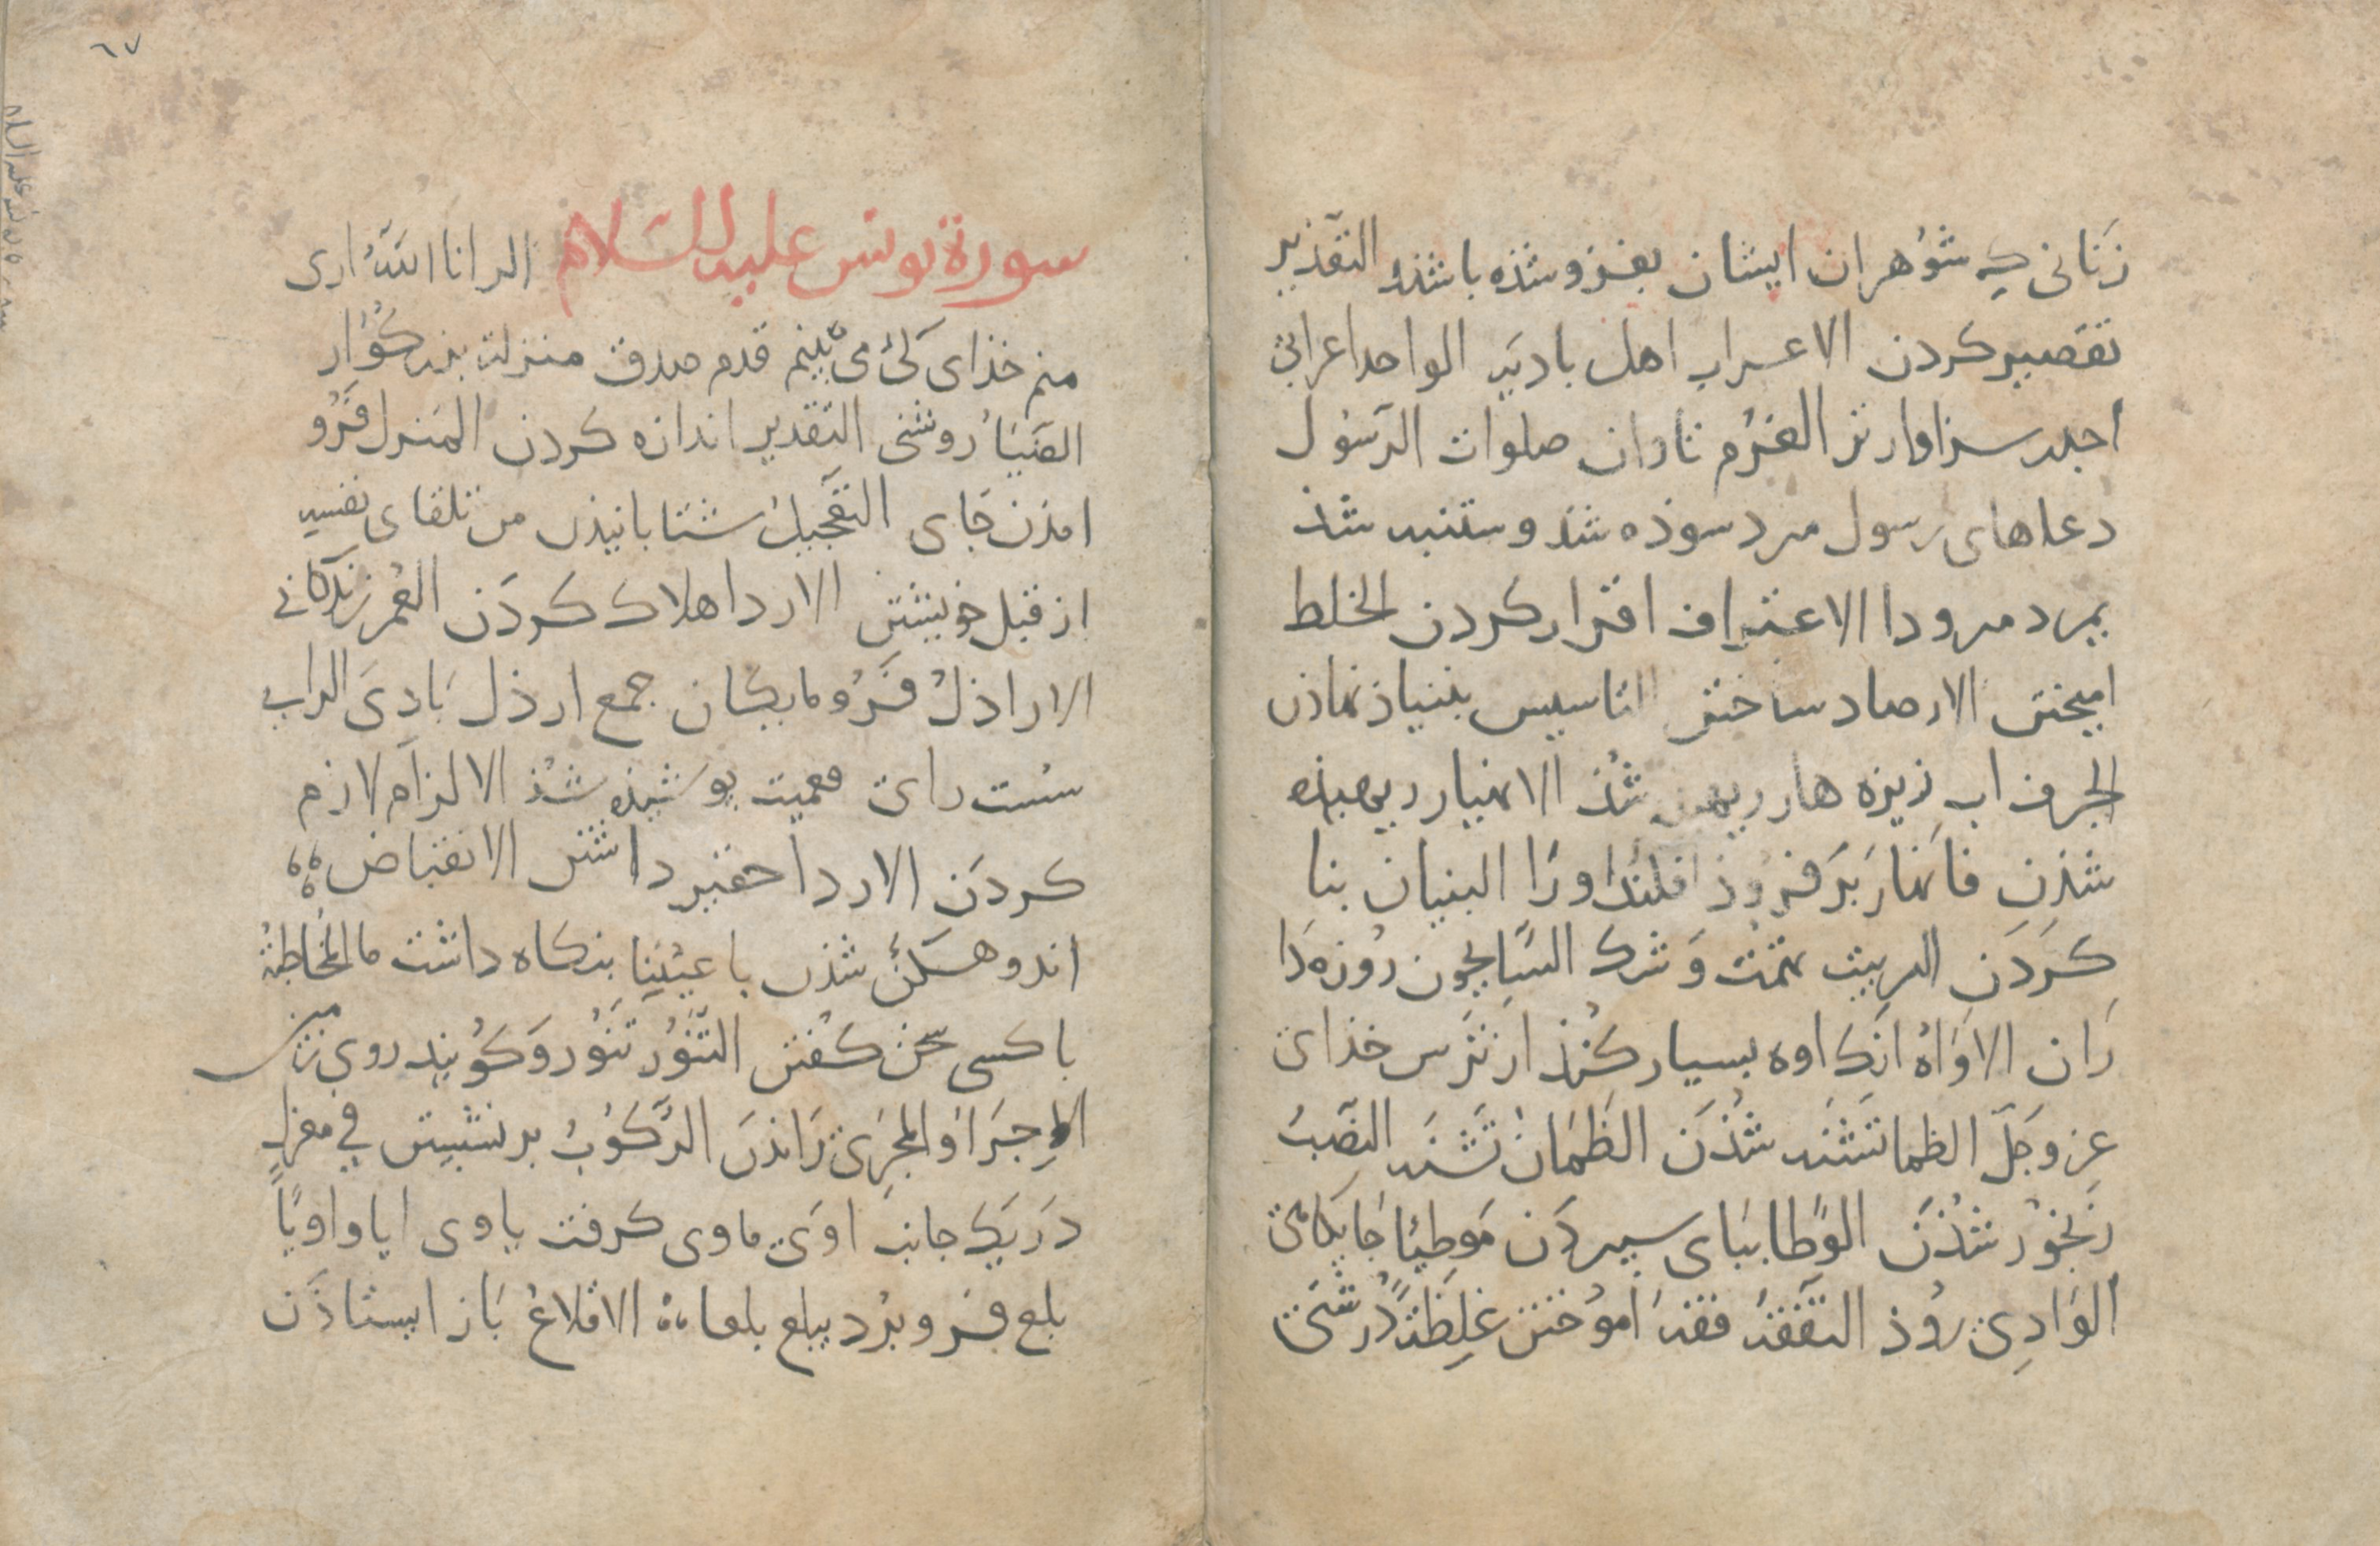 زنانی که شوهران ایشان بغزو شذه باشند التعذیر
تقصیر کردن الاعراب اهل بادیه الواحد اعرابی
اجدر سزاوارتر الغرم تاوان صلوات الرسول
دعاهای رسول مرد سوذه شذ و ستنبه شذ
یمرد مرودا الاعتراف اقرار کردن الخلط
امیختن الارصاد ساختن التاسیس بنیاذ نهاذن
الجرف اب زیزه هار شذ الانهیار ریهیذه
شذن فانهار بر فروذ افکند اورا البنیان بنا
کردن الریبة تهمت و شک السایحون روزه دا
ران الاواه انک اوه بسیار کنذ از ترس خذای
عز و جل الظما تشنه شذن الظمان تشنه النصب
رنجور شذن الوطا ببای سپردن موطیا جایکاهی
الوادی روذ التفقه فقه اموختن غلظة درشتی
٦٧
سورة یونس علیه السلام الر انا الله اری
منم خذای کی می بینم قدم صدق منزلت بزرکوار
الضیا روشنی التقدیر اندازه کردن المنزل فرو
امذن جای التعجیل شتابانیذن من تلقای نفسه
از قبل خویشتن الاردا هلاک کردن العمر زندکانی
الاراذل فرومایکان جمع ارذل بادی الرای
سست رای فعمیت پوشیذه شذ الالزام لازم
کردن الازدرا حقیر داشتن الانقباض
اندوهکن شذن باعیننا بنکاه داشت ما المخاطبة
با کسی سخن کفتن التنور تنور و کویند روی زمین
الاجرا و المجری راندن الرکوب برنشستن فی معزل
در یک جانب اوی ماوی کرفت یاوی ایا و اویا
بلع فرو برد یبلع بلعا الاقلاع باز ایستاذن